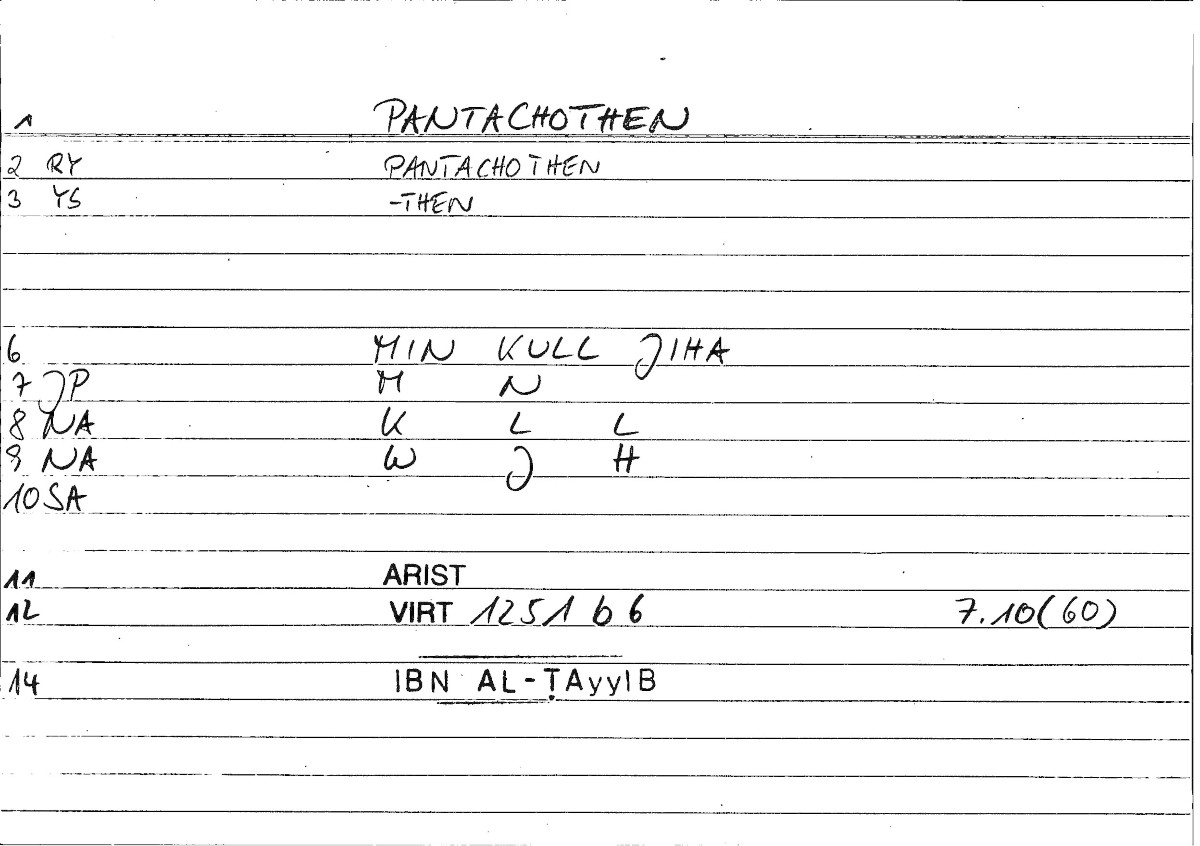 1 PANTACHOTHEN
2 RY PANTACHOTHEN
3 YS -THEN
6 MIN KULL JIHA
7 JP M N
8 NA K L L
9 NA W J H
10 SA
11 ARIST
12 VIRT 1251 b 6 7.10(60)
14 IBN AL-ṬAyyIB